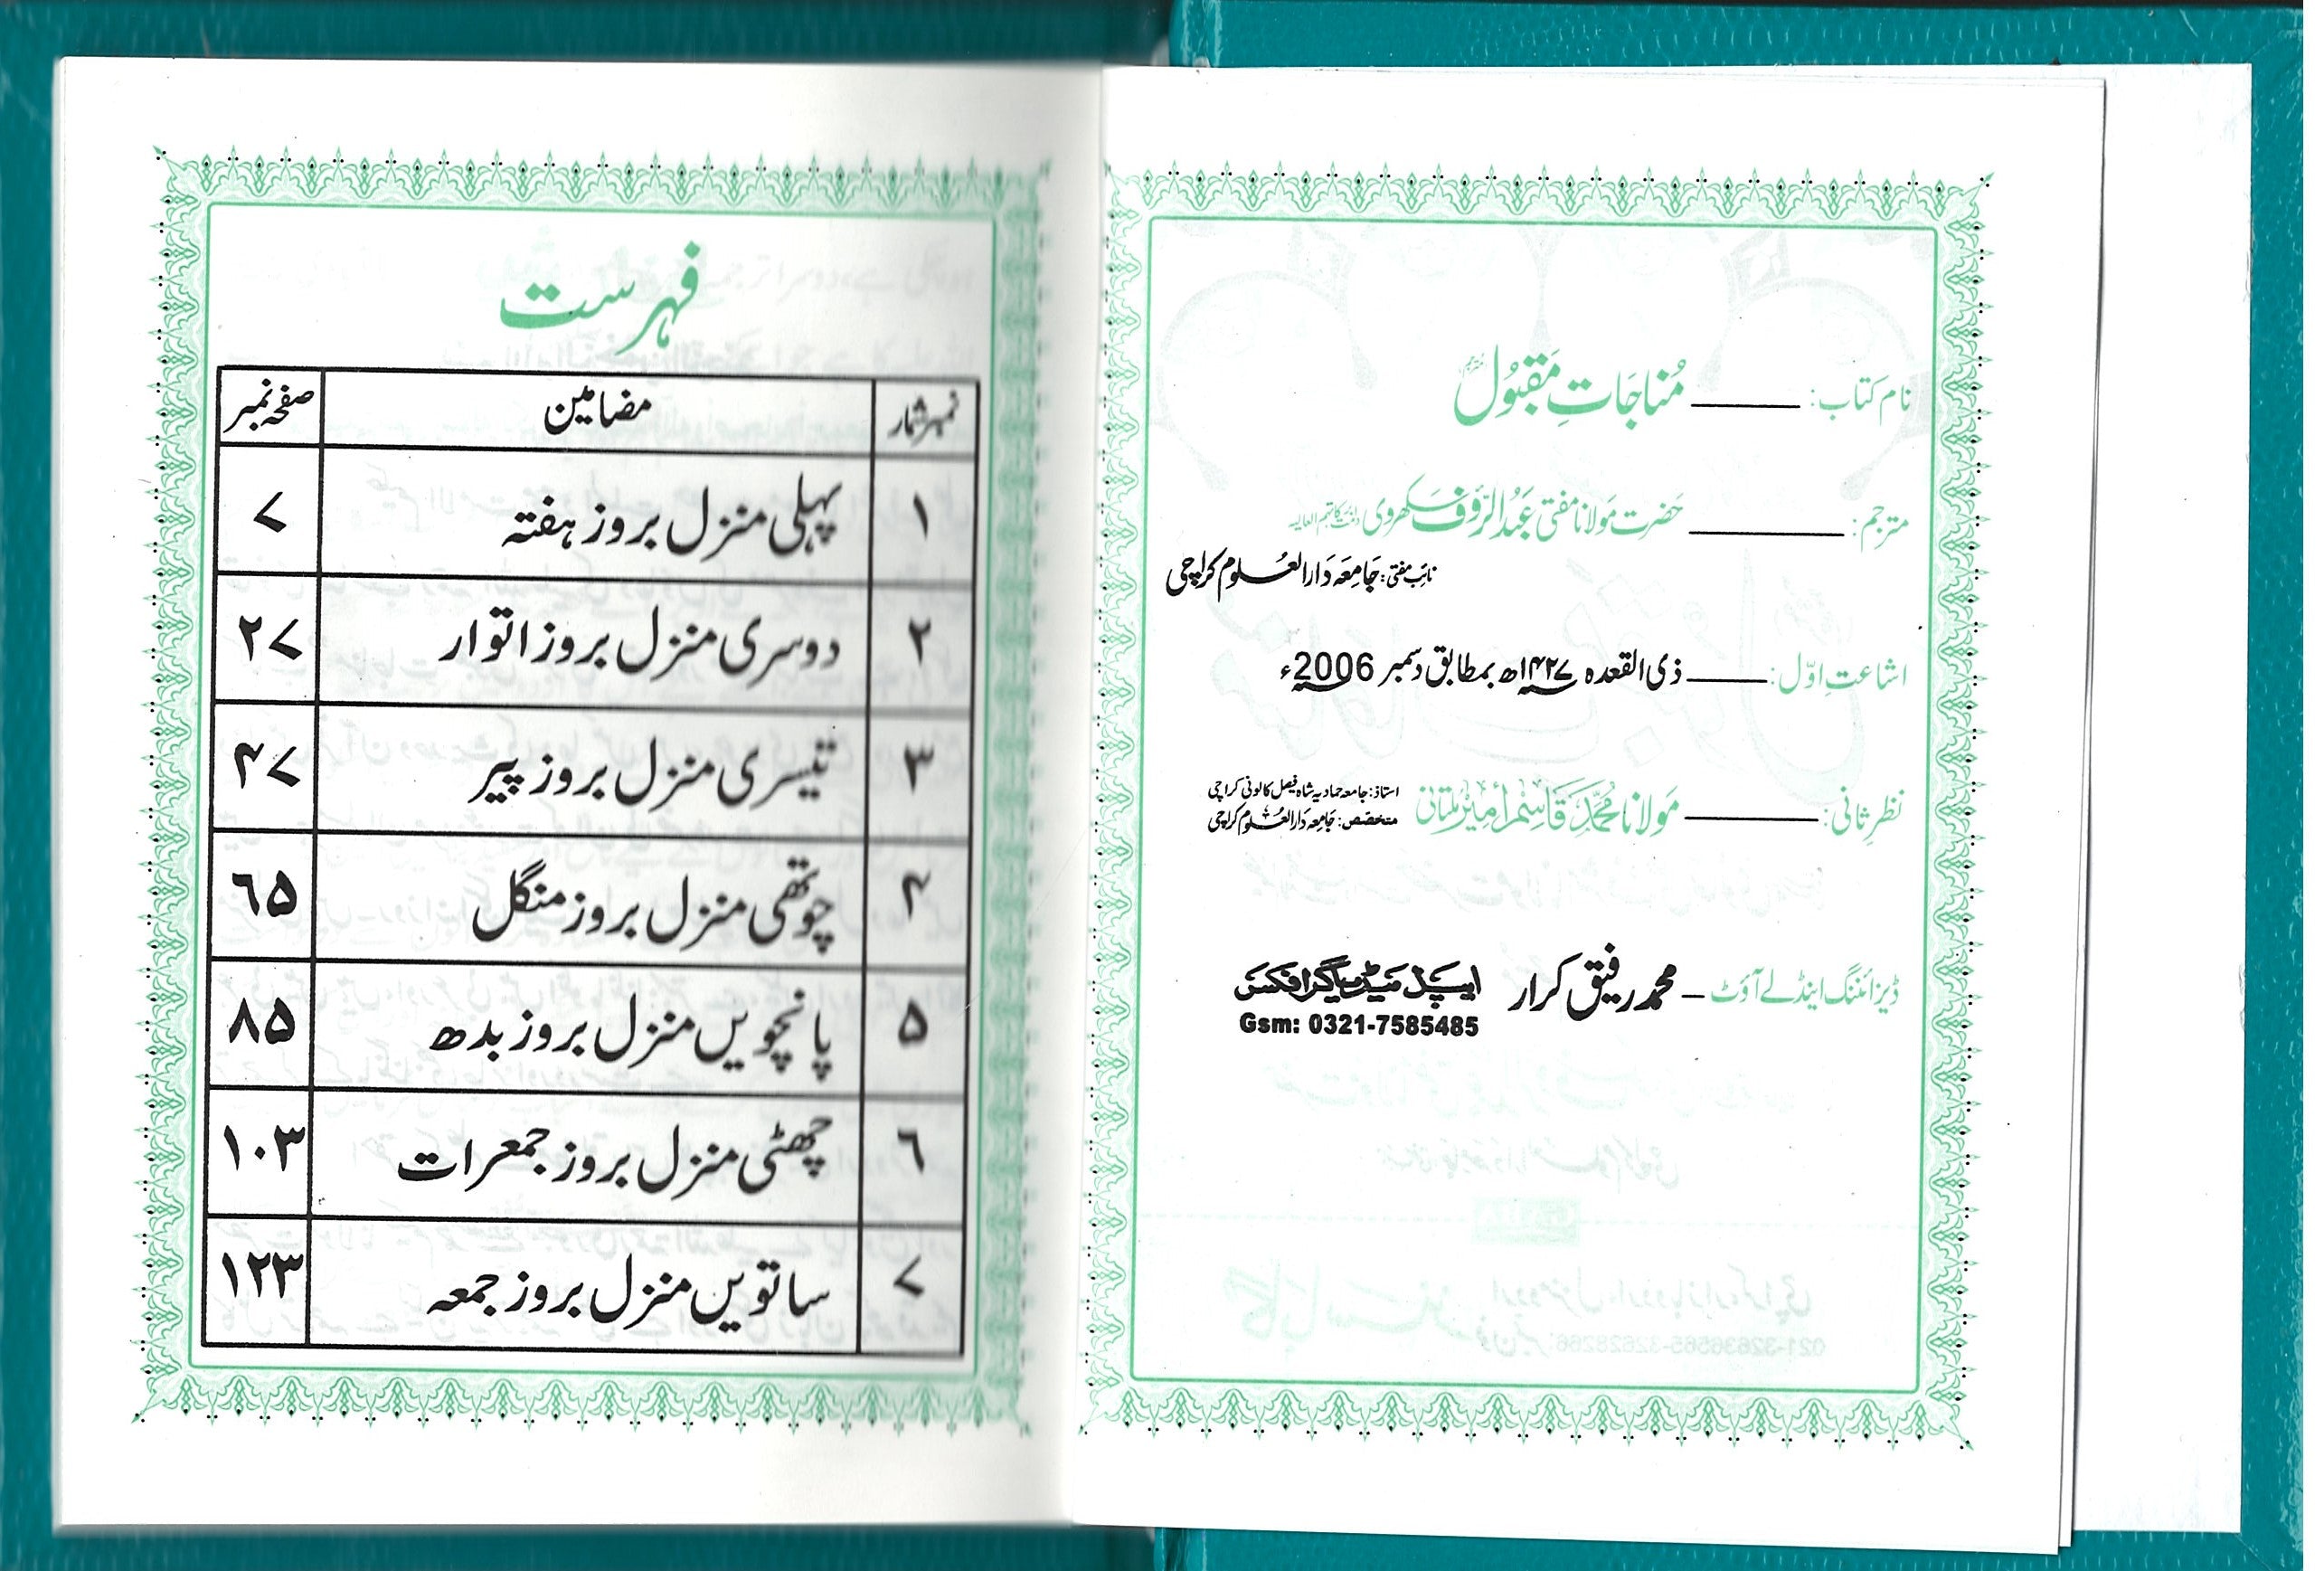 نام کتاب: ــــــ مُناجَاتِ مَقبُول مترجم
مترجم: ــــــ حَضرت مَولانا مفتی عَبدُ الرَّؤف سکھروی دامت برکاتہم العالیہ
نائب مفتی: جَامِعَہ دَارالعُلوم کراچی
اشاعتِ اوّل: ــــــ ذی القعدہ ۱۴۲۷ھ بمطابق دسمبر 2006ء
نظرِ ثانی: ــــــ مَولانا مُحمَّد قَاسِم اَمیر ملتانی استاذ: جامعہ حمادیہ شاہ فیصل کالونی کراچی
متخصّص: جَامِعہ دَارالعُلوم کراچی
ڈیزائننگ اینڈ لے آؤٹ ــ محمد رفیق کرار ایپل میڈیا گرافکس
Gsm: 0321-7585485
فہرست
نمبر شمار مضامین صفحہ نمبر
۱ پہلی منزل بروز ہفتہ ۷
۲ دوسری منزل بروز اتوار ۲۷
۳ تیسری منزل بروز پیر ۴۷
۴ چوتھی منزل بروز منگل ۶۵
۵ پانچویں منزل بروز بدھ ۸۵
۶ چھٹی منزل بروز جمعرات ۱۰۳
۷ ساتویں منزل بروز جمعہ ۱۲۳